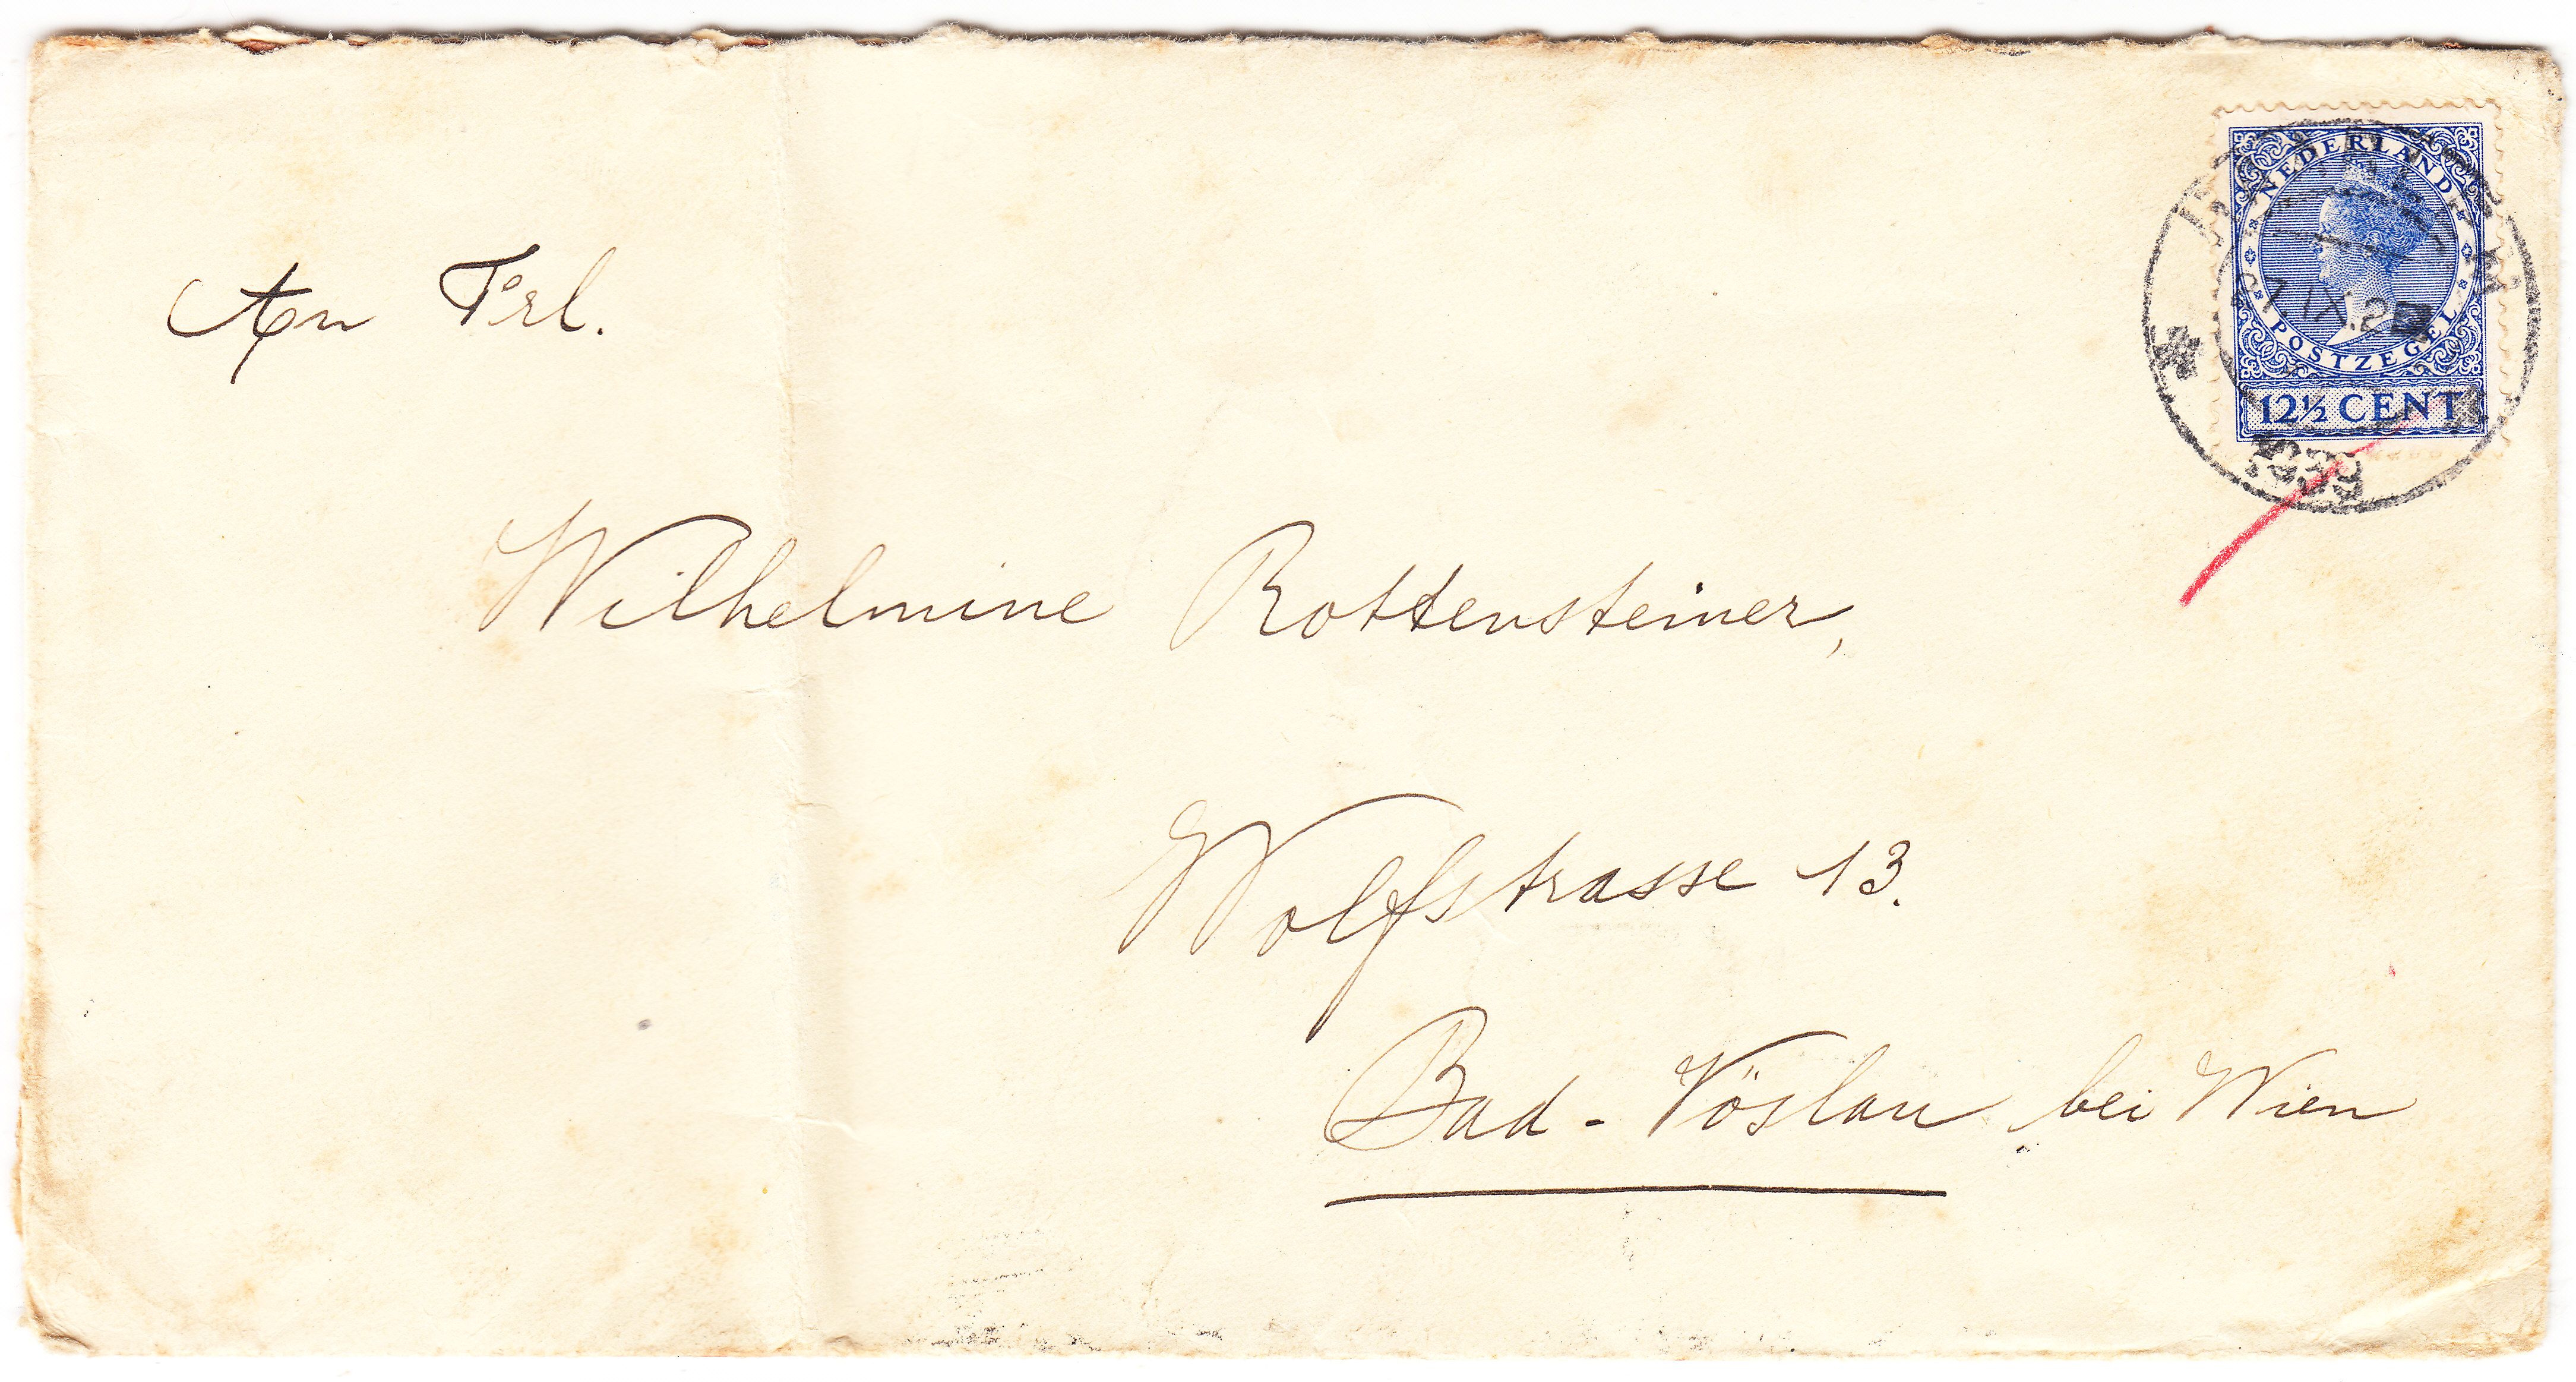 NEDERLAND
POSTZEGEL
12½ CENT
An Frl.
Wilhelmine Rottensteiner,
Wolfstrasse 13.
Bad-Vöslau bei Wien